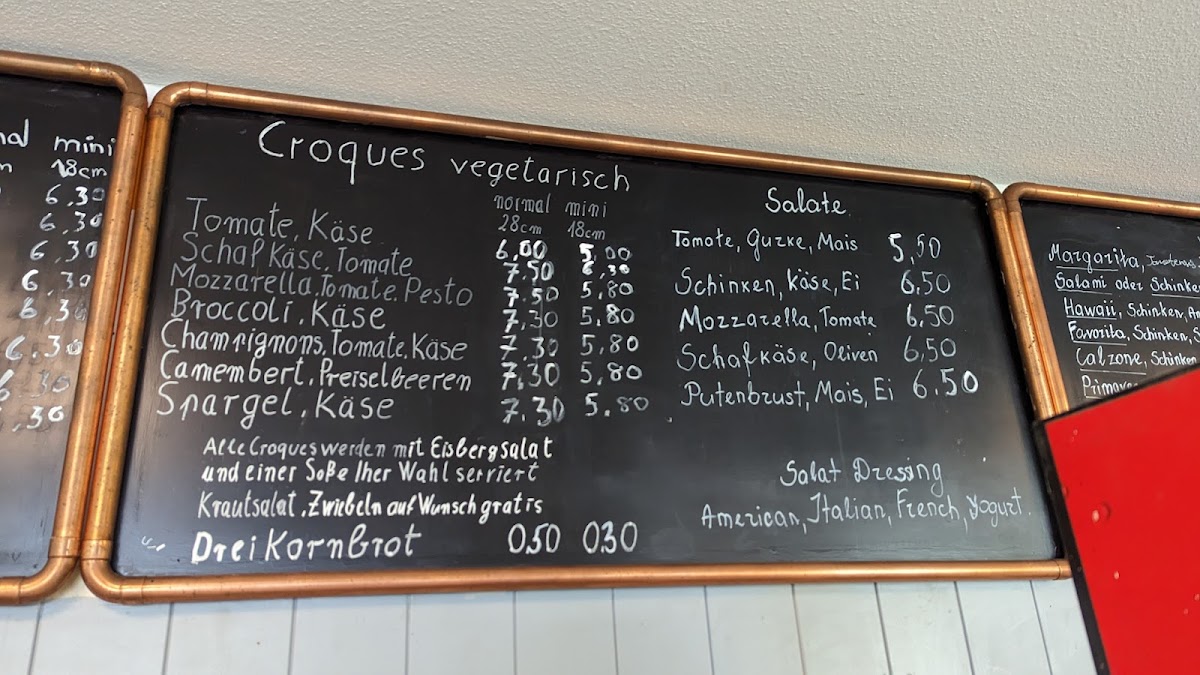 mini
18cm
6,30
6,30
6,30
6,30
6,30
6,30
6,30
Croques vegetarisch
normal mini
28cm 18cm
Tomate, Käse 6,00 5,00
Schafkäse, Tomate 7,50 6,30
Mozzarella, Tomate, Pesto 7,50 5,80
Broccoli, Käse 7,30 5,80
Champrignons, Tomate, Käse 7,30 5,80
Camembert, Preiselbeeren 7,30 5,80
Spargel, Käse 7.30 5.80
Alle Croques werden mit Eisbergsalat
und einer Soße Iher Wahl serviert
Krautsalat, Zwiebeln auf Wunsch gratis
Dreikornbrot 050 030
Salate
Tomate, Gurke, Mais 5,50
Schinken, Käse, Ei 6,50
Mozzarella, Tomate 6,50
Schafkäse, Oliven 6,50
Putenbrust, Mais, Ei 6,50
Salat Dressing
American, Italian, French, Yogurt.
Margarita,
Salami oder Schinken
Hawaii, Schinken,
Favorita, Schinken,
Calzone, Schinken